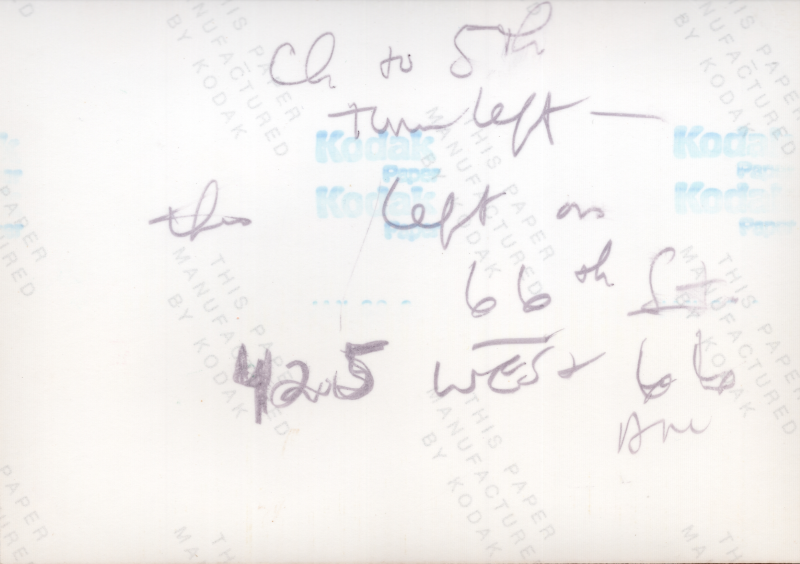 Ch to 5th
turn left —
left on
66th St
425 WEST 66
Kodak
Paper
Kodak
Paper
Kodak
Paper
Kodak
Paper
THIS PAPER
MANUFACTURED
BY KODAK
THIS PAPER
MANUFACTURED
BY KODAK
THIS PAPER
MANUFACTURED
BY KODAK
THIS PAPER
MANUFACTURED
BY KODAK
THIS PAPER
MANUFACTURED
THIS PAPER
MANUFACTURED
BY KODAK